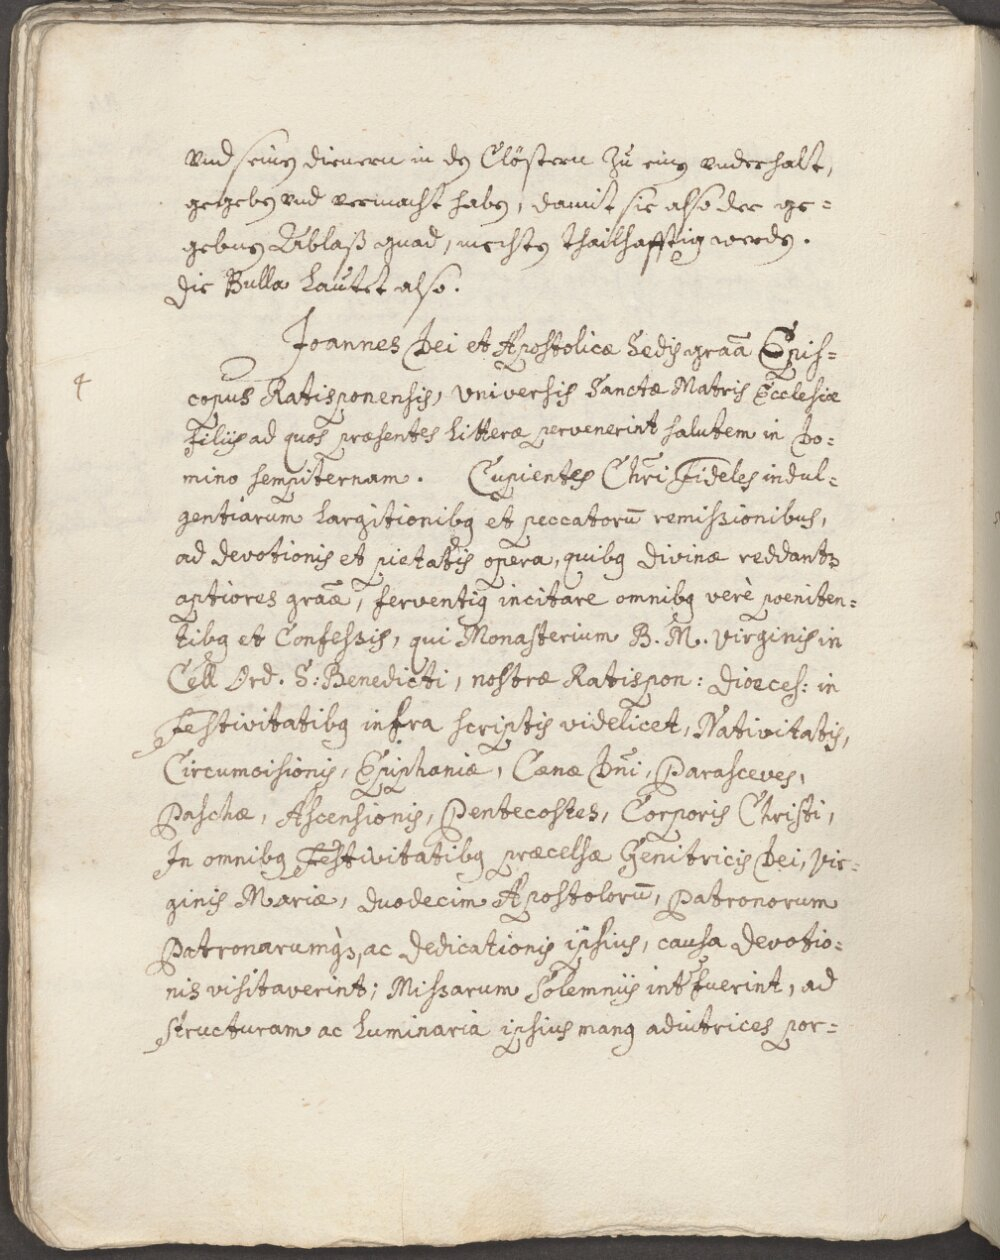 vnd seinen dienern in den Clöstern zu einem vnderhalt,
gegeben vnd vermacht haben, damit sie also der ge=
gebnen Ablaß gnad, mechten thailhafftig werden.
die Bulla lautet also.
Joannes Dei et Apostolicæ Sedis graã Epis=
copus Ratisponensis, Universis Sanctæ Matris Ecclesiæ
filiis ad quos præsentes Litteræ pervenerint salutem in Do=
mino sempiternam. Cupientes Chri Fideles indul=
gentiarum largitionibq et peccatorũ remissionibus,
ad devotionis et pietatis opera, quibq divinæ reddantꝫ
aptiores graæ, ferventiq incitare omnibq verè pœniten=
tibq et Confessis, qui Monasterium B. M. Virginis in
Cell Ord. S: Benedicti, nostræ Ratispon: Diœces: in
Festivitatibq infra scriptis videlicet, Nativitatis,
Circumcisionis, Epiphaniæ, Cænæ Dñi, Parasceves,
Paschæ, Ascensionis, Pentecostes, Corporis Christi,
In omnibq Festivitatibq præcelsæ Genitricis Dei, Vir=
ginis Mariæ, duodecim Apostolorũ, Patronorum
Patronarumqꝫ, ac Dedicationis ipsius, causa devotio=
nis visitaverint; Missarum Solemniis intꝰfuerint, ad
structuram ac Luminaria ipsius manq adiutrices por=